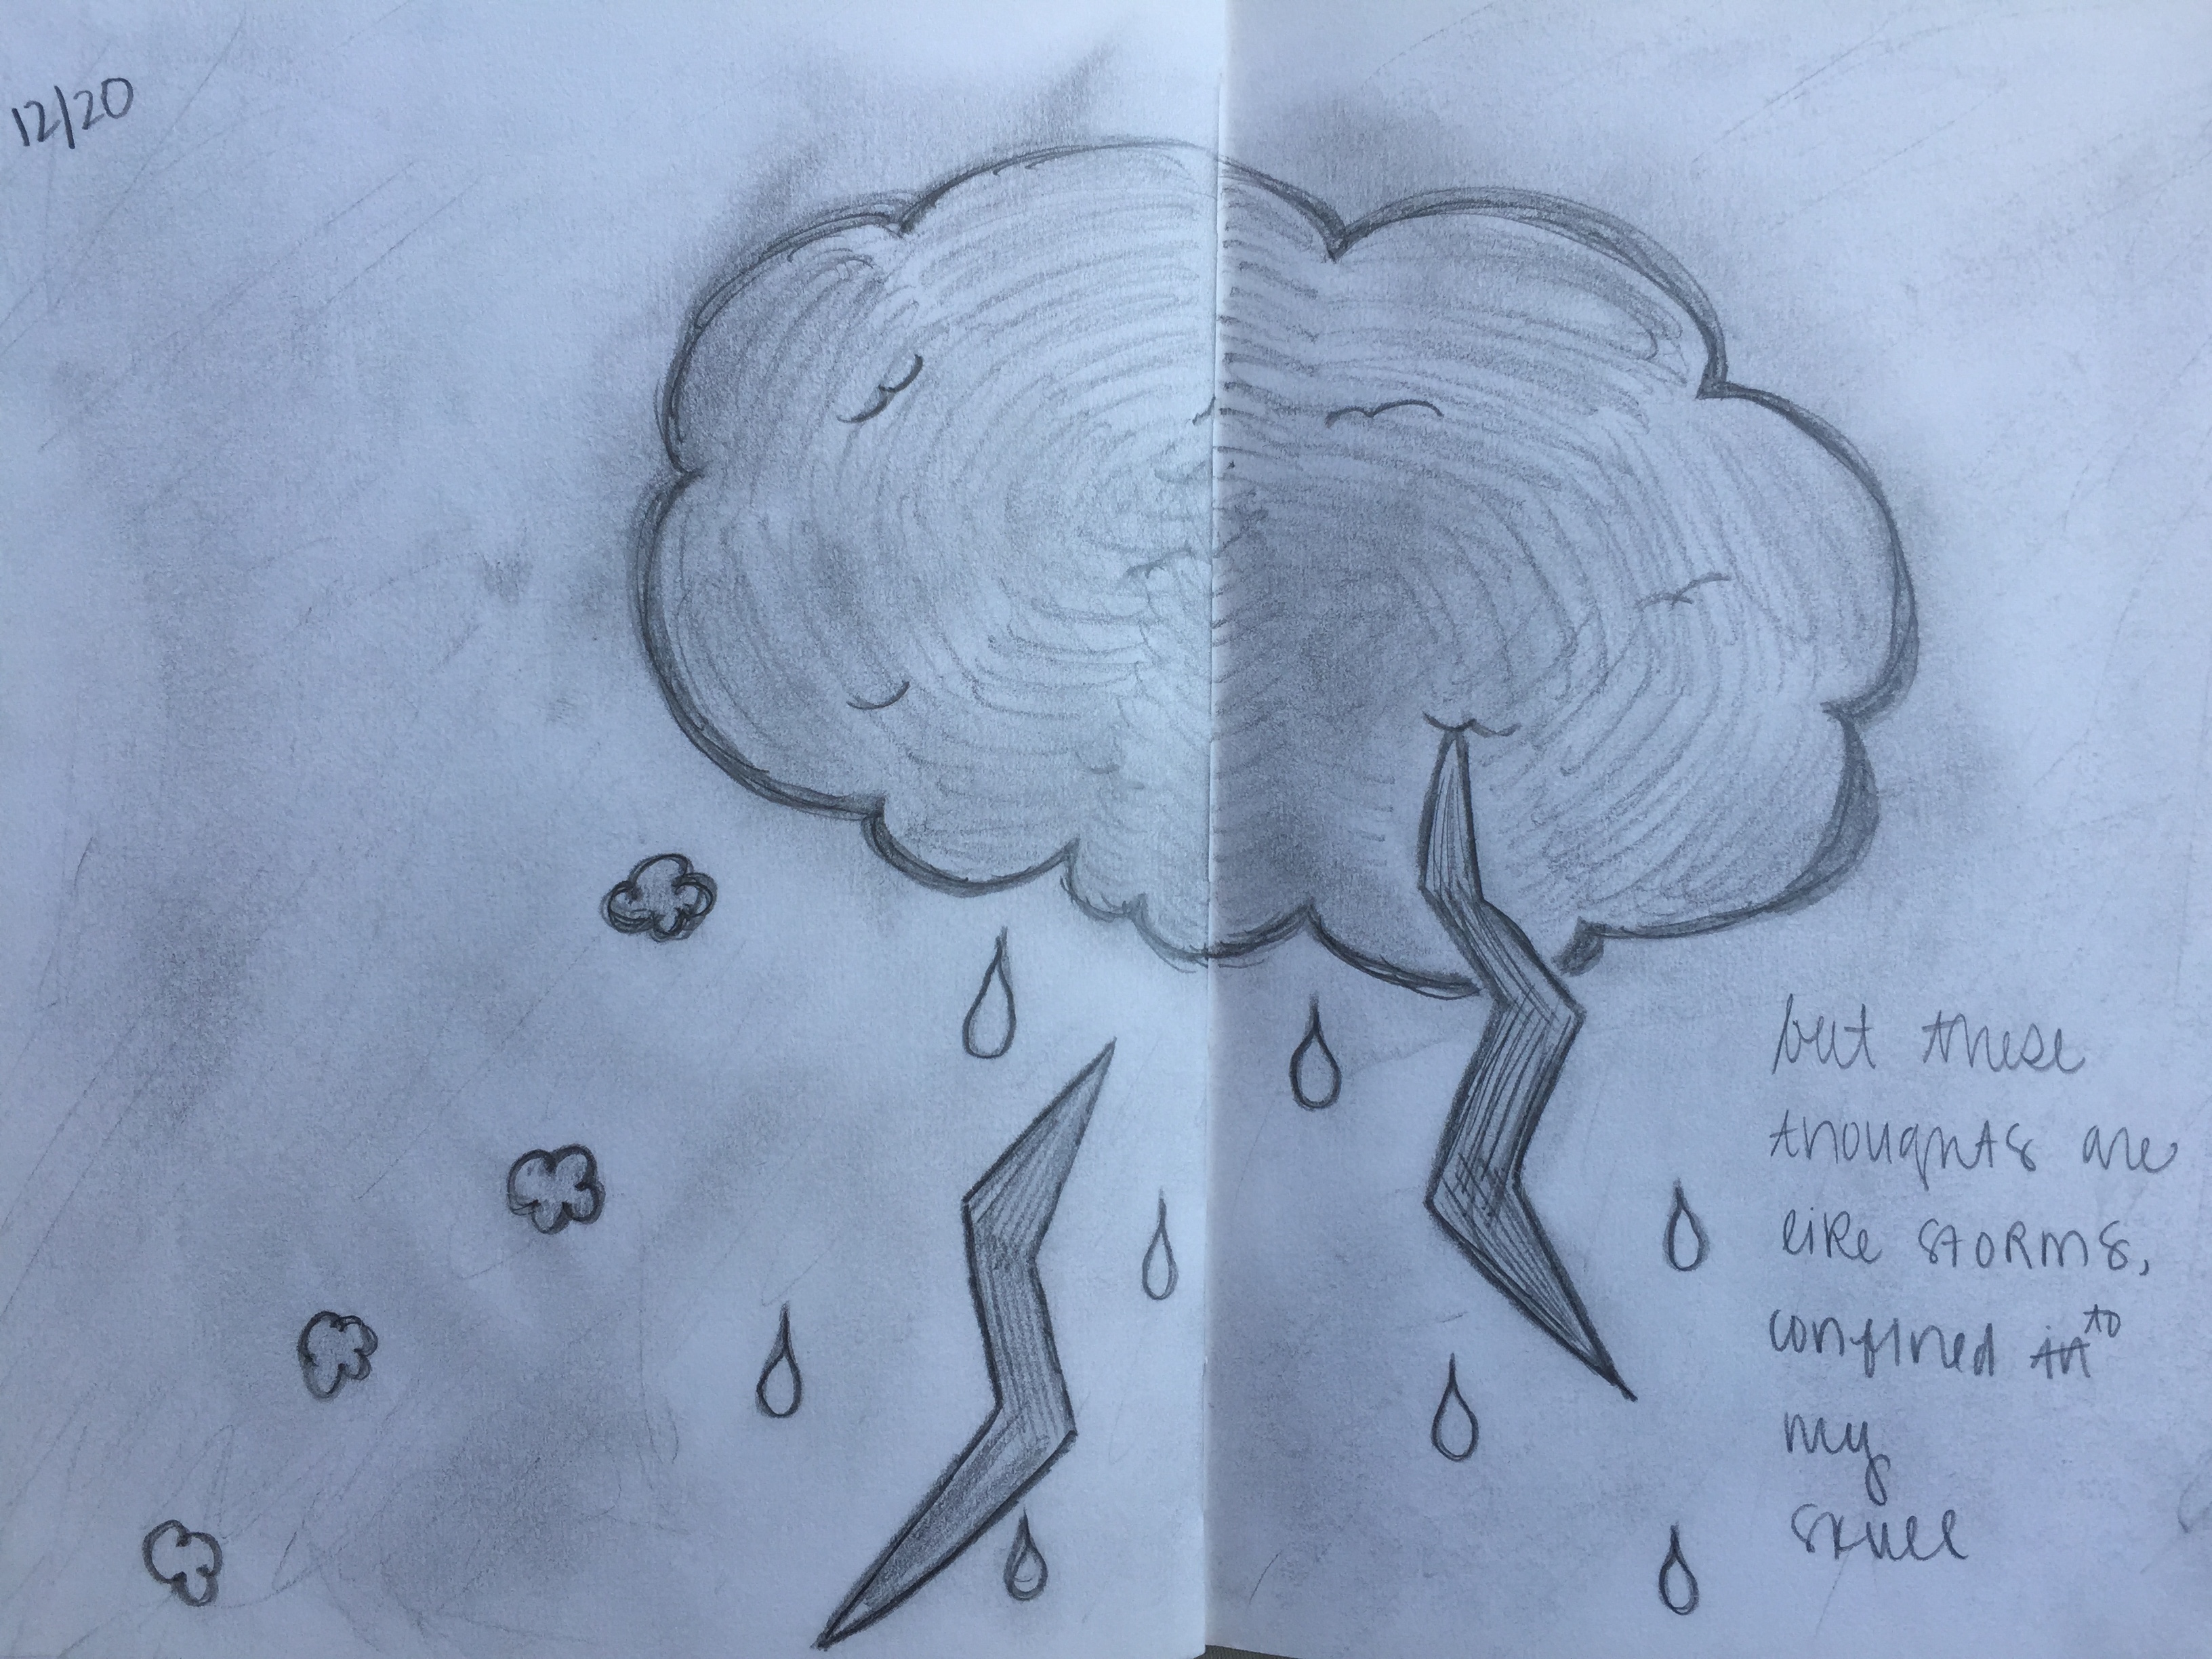 12/20
but these
thoughts are
like storms,
confined in to
my
skull